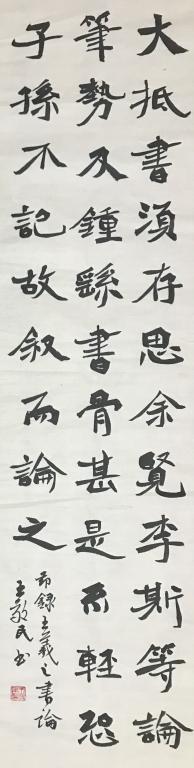 大抵書須存思余覽李斯等論
筆勢及鍾繇書骨甚是不輕恐
子孫不記故叙而論之
節錄王羲之書論
王敬民書